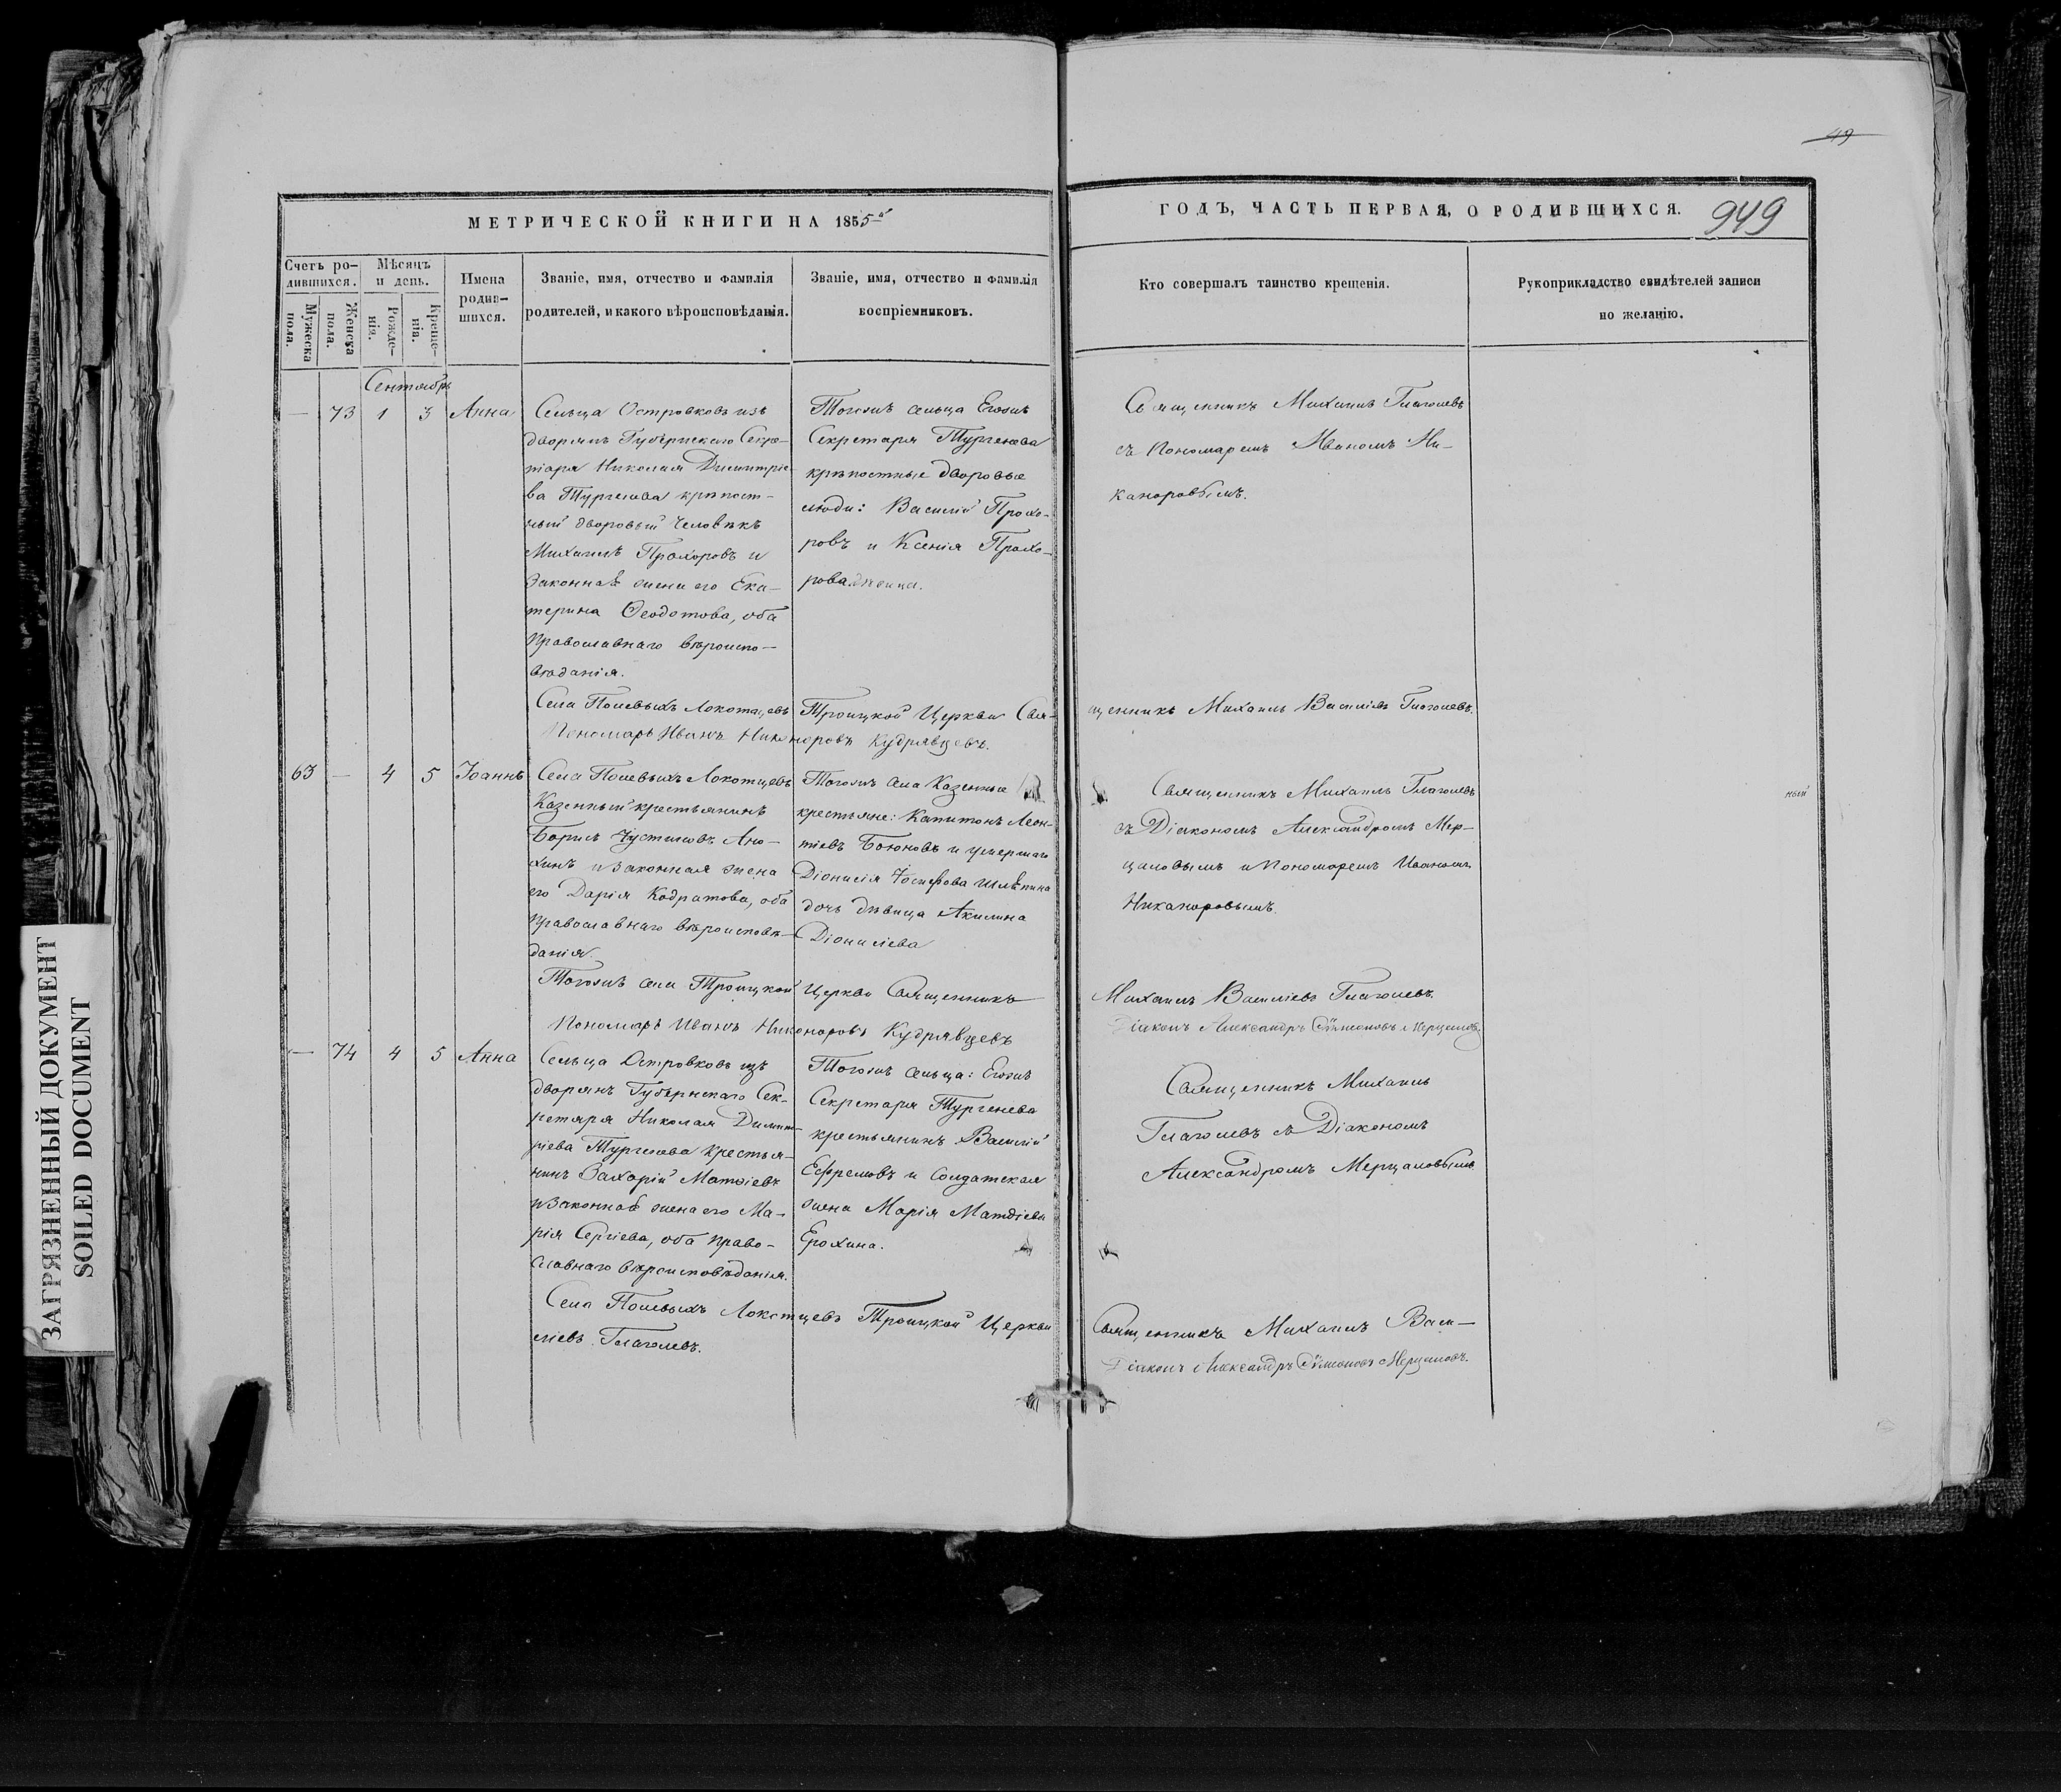 49
МЕТРИЧЕСКОЙ КНИГИ НА 1855й
ГОДЪ, ЧАСТЬ ПЕРВАЯ, О РОДИВШИХСЯ.
949
Счетъ ро-
дившихся.
Мужеска
пола.
Женска
пола.
Мѣсяцъ
и день.
Рожде-
нія.
Креще-
нія.
Имена
родив-
шихся.
Званіе, имя, отчество и фамилія
родителей, и какого вѣроисповѣданія.
Званіе, имя, отчество и фамилія
воспріемниковъ.
Кто совершалъ таинство крещенія.
Рукоприкладство свидѣтелей записи
по желанію.
Сентябрь
— 73 1 3 Анна
Сельца Островковъ изъ
дворянъ Губернскаго Секре-
таря Николая Димитріе-
ва Тургенева крѣпост-
ный дворовый человѣкъ
Михаилъ Прохоровъ и
законная жена его Ека-
терина Ѳеодотова, оба
православнаго вѣроиспо-
вѣданія.
Тогожъ сельца Егожъ
Секретаря Тургенева
крѣпостные дворовые
люди: Василій Прохо-
ровъ и Ксенія Прохо-
рова дѣвица.
Священникъ Михаилъ Глаголевъ
съ Пономаремъ Иваномъ Ни-
каноровымъ.
Села Полевыхъ Локотцевъ Троицкой Церкви Свя-
щенникъ Михаилъ Василіевъ Глаголевъ.
Пономарь Иванъ Никаноровъ Кудрявцевъ.
63 — 4 5 Іоаннъ
Села Полевыхъ Локотцевъ
Казенный крестьянинъ
Борисъ Іустиновъ Ано-
хинъ и законная жена
его Дарія Кодратова, оба
православнаго вѣроисповѣ-
данія.
Тогожъ села Казенные
крестьяне: Капитонъ Леон-
тіевъ Боюновъ и умершаго
Діонисія Іосифова Шлѣпина
дочь дѣвица Акилина
Діонисіева
Священникъ Михаилъ Глаголевъ
съ Діакономъ Александромъ Мер-
цаловымъ и Пономаремъ Иваномъ
Никаноровымъ.
ный
Тогожъ села Троицкой Церкви Священникъ
Михаилъ Василіевъ Глаголевъ.
Пономарь Иванъ Никаноровъ Кудрявцевъ
Діаконъ Александръ Сѵмеоновъ Мерцаловъ.
— 74 4 5 Анна
Сельца Островковъ изъ
дворянъ Губернскаго Сек-
ретаря Николая Димит-
ріева Тургенева крестья-
нинъ Захарій Матѳіевъ
и законная жена его Ма-
рія Сергіева, оба право-
славнаго вѣроисповѣданія.
Тогожъ сельца: Егожъ
Секретаря Тургенева
крестьянинъ Василій
Ефремовъ и солдатская
жена Марія Матѳіева
Ерохина.
Священникъ Михаилъ
Глаголевъ съ Діакономъ
Александромъ Мерцаловымъ
Села Полевыхъ Локотцевъ Троицкой Церкви
Священникъ Михаилъ Васи-
ліевъ Глаголевъ.
Діаконъ Александръ Сѵмеоновъ Мерцаловъ.
ЗАГРЯЗНЕННЫЙ ДОКУМЕНТ
SOILED DOCUMENT